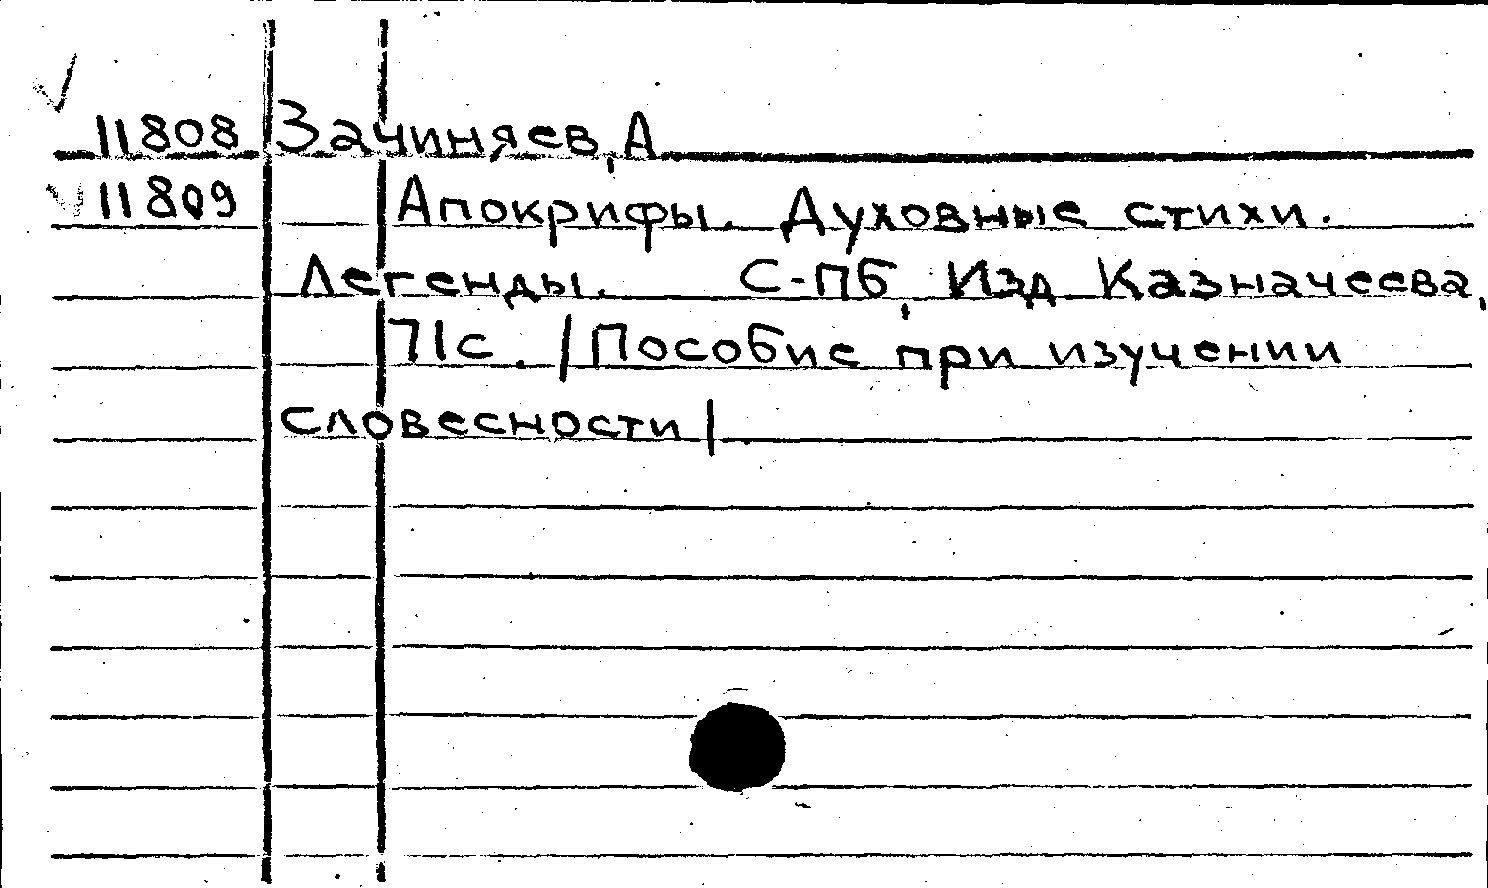 11808 Зачиняев, А
11809 Апокрифы. Духовные стихи.
Легенды. С-Пб, Изд Казначеева,
71с. /Пособие при изучении
словесности/